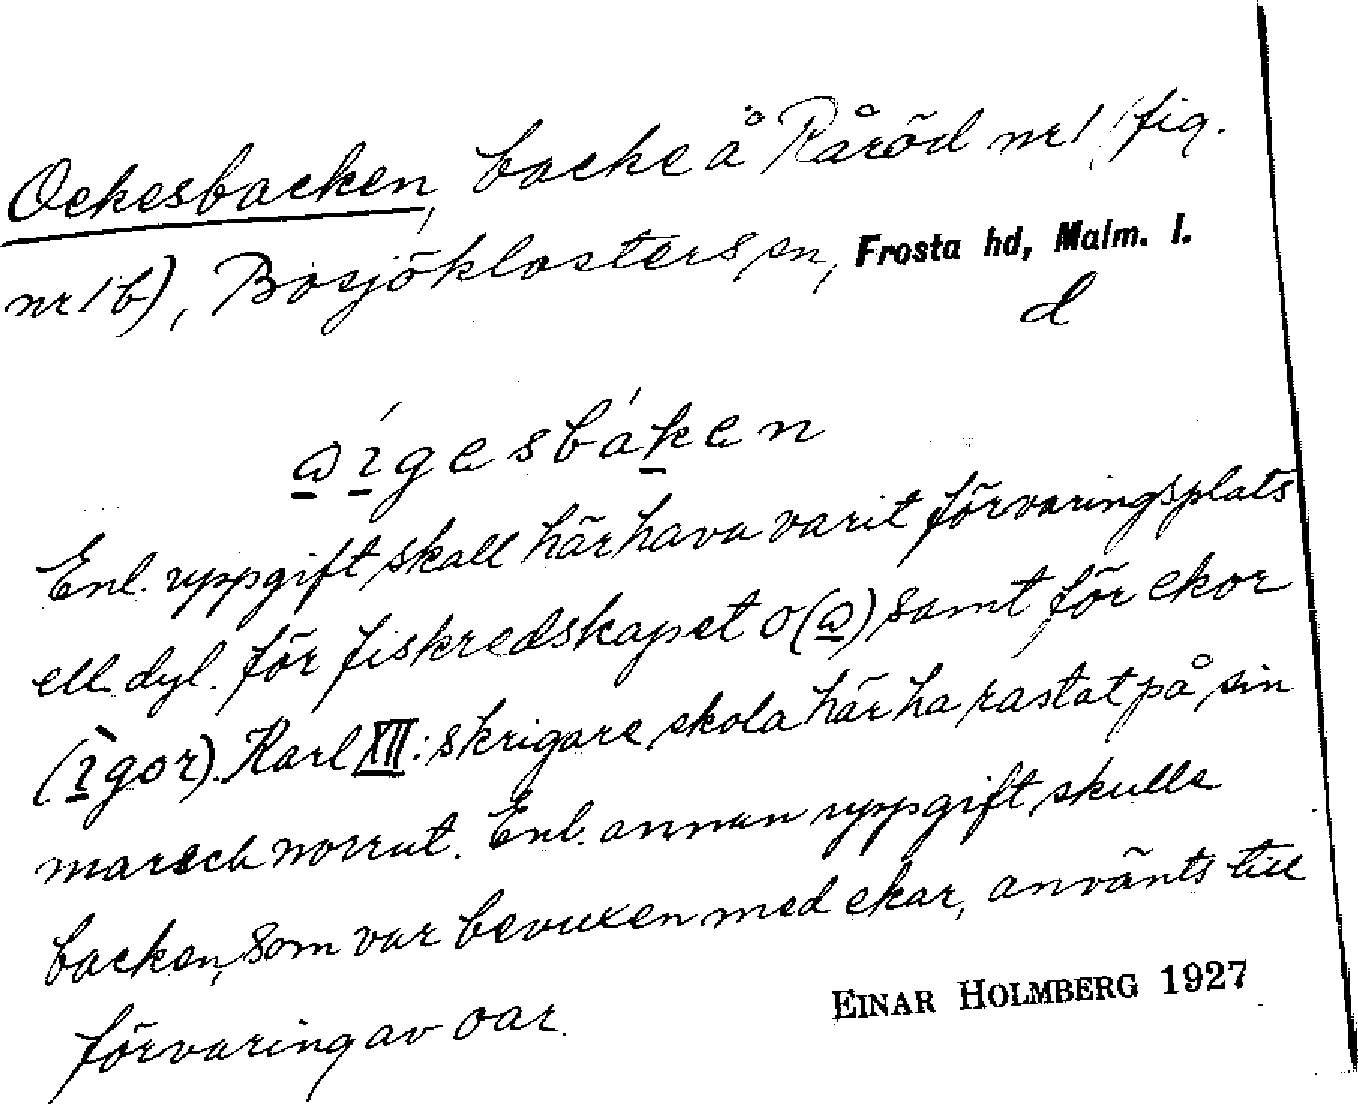 Oekesbacken, backe å Råröd nr 1 (fig.
nr 1 b), Bosjöklosters sn, Frosta hd, Malm. l.
d
Enl. uppgift skall här hava varit förvaringsplats
ell. dyl. för fiskredskapet o (a) samt för ekor
Karl XII: s krigare skola här ha rastat på sin
marsch norrut. Enl. annan uppgift skulle
backen, som var bevuxen med ekar, använts till
förvaring av oar.
EINAR HOLMBERG 1927